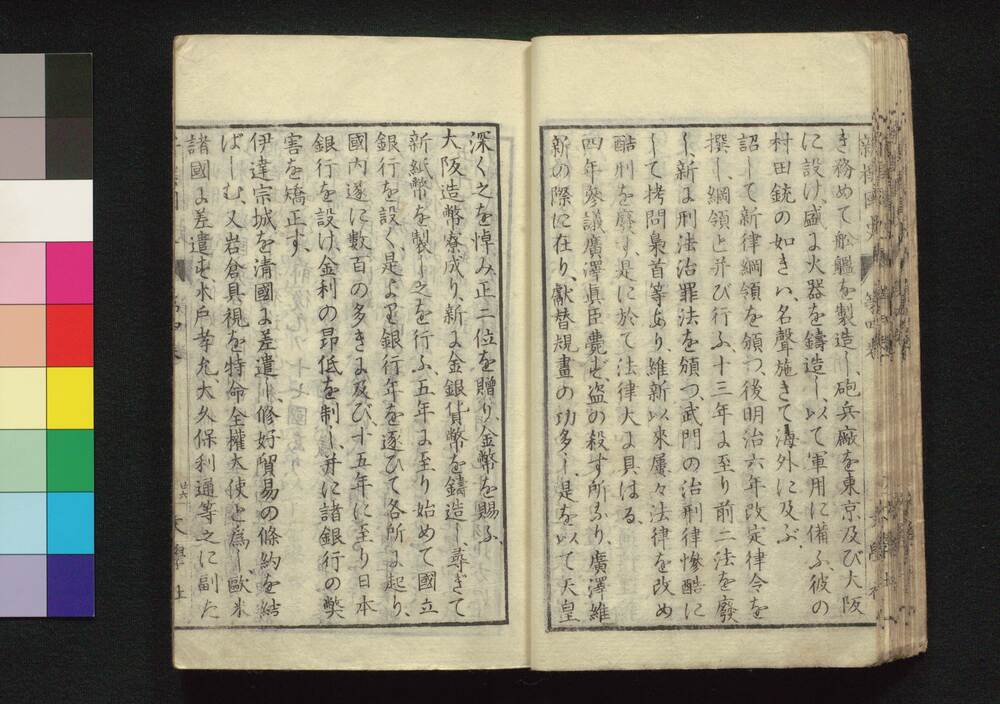 き務めて舩艦を製造し、砲兵廠を東京及び大阪
に設け、盛に火器を鑄造し、以て軍用に備ふ、彼の
村田銃の如きハ、名聲施きて海外に及ぶ、
詔して新律綱領を頒つ、後明治六年改定律令を
撰し、綱領と并び行ふ、十三年に至り前二法を廢
し、新に刑法治罪法を頒つ、武門の治刑律慘酷に
して拷問梟首等あり、維新以來屢々法律を改め
酷刑を廢し、是に於て法律大に具はる、
四年參議廣澤眞臣薨ず盗の殺す所なり、廣澤維
新の際に在り、獻替規畫の功多し、是を以て天皇
深く之を悼み、正二位を贈り、金幣を賜ふ、
大阪造幣寮成り、新に金銀貨幣を鑄造し、尋ぎて
新紙幣を製し之を行ふ、五年に至り始めて國立
銀行を設く、是より銀行年を逐ひて各所に起り、
國内遂に數百の多きに及び、十五年に至り日本
銀行を設け、金利の昂低を制し、并に諸銀行の弊
害を矯正す、
伊達宗城を清國に差遣し、修好貿易の條約を結
ばしむ、又岩倉具視を特命全權大使と爲し、歐米
諸國に差遣す、木戸孝允、大久保利通等之に副た
廿六